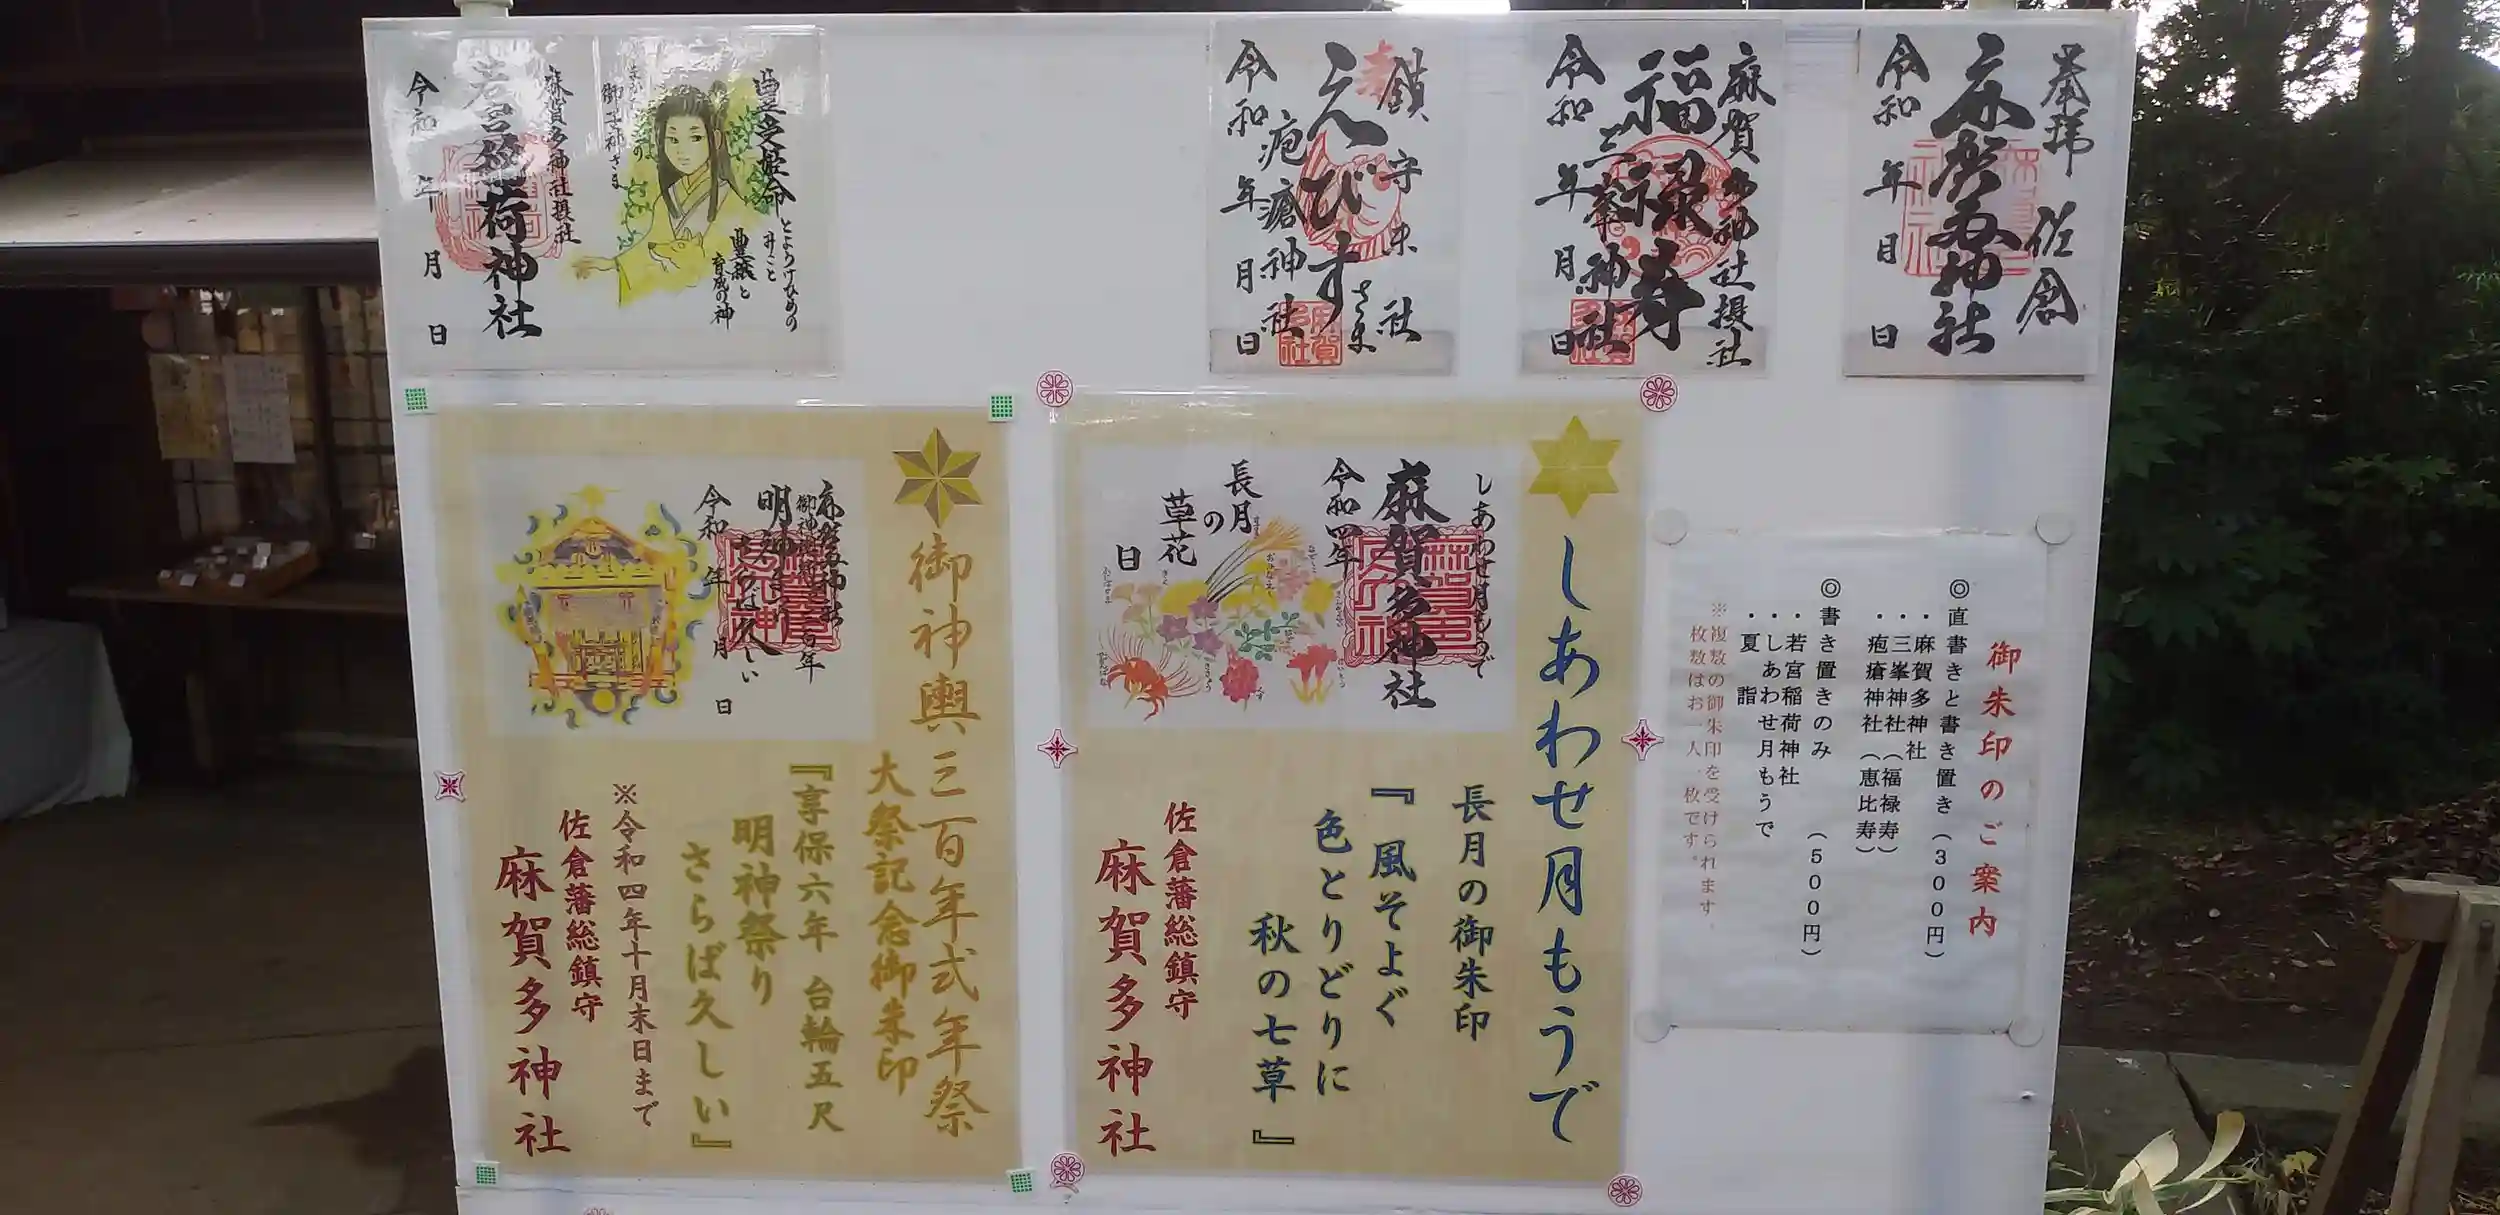 奉拝
佐倉
麻賀多神社
令和 年 月 日
麻賀多神社摂社
福禄寿
三峯神社
令和 年 月 日
鎮守末社
えびすさま
疱瘡神社
令和 年 月 日
豊受姫命
とようけひめのみこと
豊穣と
育成の神
御子神さま
麻賀多神社摂社
若宮稲荷神社
令和 年 月 日
御朱印のご案内
◎直書きと書き置き(300円)
・麻賀多神社
・三峯神社(福禄寿)
・疱瘡神社(恵比寿)
◎書き置きのみ (500円)
・若宮稲荷神社
・しあわせ月もうで
・夏詣
※複数の御朱印を受けられます。
枚数はお一人一枚です。
しあわせ月もうで
しあわせ月もうで
麻賀多神社
令和四年
長月
の
草花
日
長月の御朱印
『風そよぐ
色とりどりに
秋の七草』
佐倉藩総鎮守
麻賀多神社
御神輿三百年式年祭
大祭記念御朱印
『享保六年 台輪五尺
明神祭り
さらば久しい』
※令和四年十月末日まで
佐倉藩総鎮守
麻賀多神社
令和 年 月 日